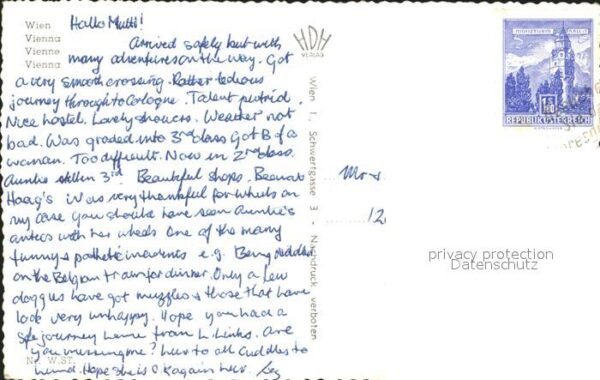 Wien
Vienna
Vienne
Vienna
HDH
VERLAG
Hallo Mutti!
Arrived safely but with
many adventures on the way. Got
a very smooth crossing. Rather tedious
journey through to Cologne. Talent putrid.
Nice hostel. Lovely showers. Weather not
bad. Was graded into 3rd class Got B of a
woman. Too difficult. Now in 2nd class.
Auntie still in 3rd. Beautiful shops.
Haag's Was very thankful for wheels on
my case you should have seen Auntie's
antics with her wheels One of the many
funny & pathetic incidents e.g. Being
on the Belgian train for dinner. Only a few
doggies have got muzzles & those that have
look very unhappy. Hope you had a
safe journey home from L. Links. Are
you missing me? luv to all Cuddles to
Hope she is O.K again luv.
Wien I, Schwertgasse 3 - Nachdruck verboten
Nr. W.ST.
Mrs
12
REPUBLIK ÖSTERREICH
privacy protection
Datenschutz